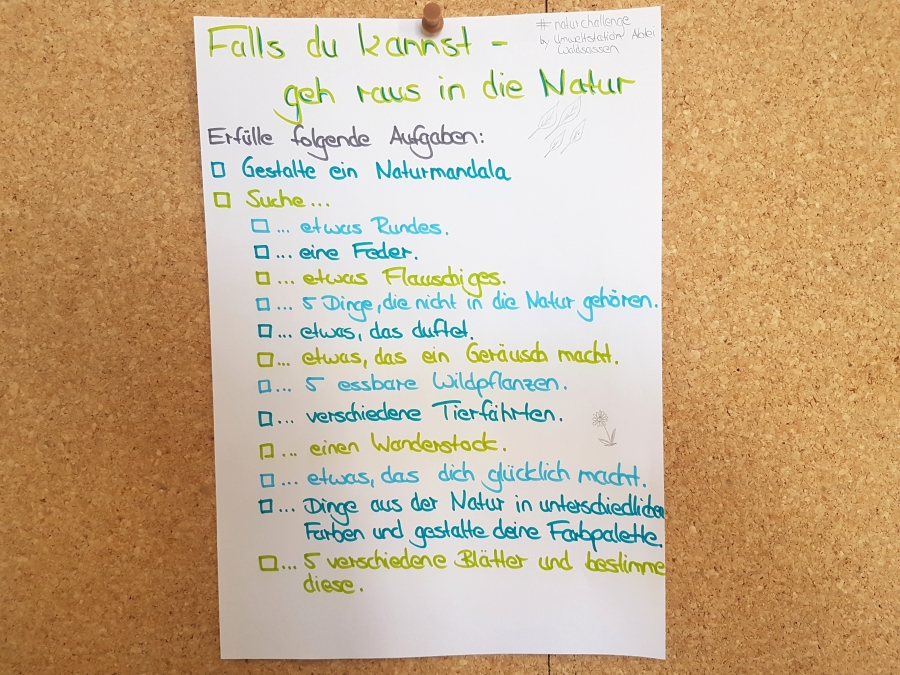 Falls du kannst -
geh raus in die Natur
#naturchallenge
by Umweltstation Abtei
Waldsassen
Erfülle folgende Aufgaben:
Gestalte ein Naturmandala
Suche...
... etwas Rundes.
... eine Feder.
... etwas Flauschiges.
... 5 Dinge, die nicht in die Natur gehören.
... etwas, das duftet.
... etwas, das ein Geräusch macht.
... 5 essbare Wildpflanzen.
... verschiedene Tierfährten.
... einen Wanderstock.
... etwas, das dich glücklich macht.
... Dinge aus der Natur in unterschiedlichen
Farben und gestalte deine Farbpalette.
... 5 verschiedene Blätter und bestimme
diese.